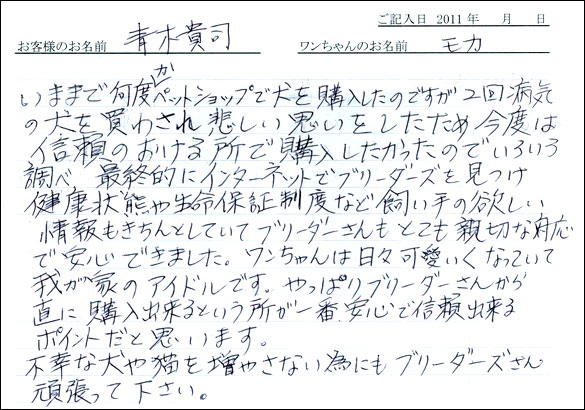 ご記入日 2011年 月 日
お客様のお名前 青木貴司 ワンちゃんのお名前 モカ
いままで何度かペットショップで犬を購入したのですが2回病気
の犬を買わされ悲しい思いをしたため今度は
信頼のおける所で購入したかったのでいろいろ
調べ 最終的にインターネットでブリーダーズを見つけ
健康状態や生命保証制度など飼い手の欲しい
情報もきちんとしていてブリーダーさんもとても親切な対応
で安心できました。ワンちゃんは日々可愛いくなっていて
我が家のアイドルです。やっぱりブリーダーさんから
直に購入出来るという所が一番安心で信頼出来る
ポイントだと思います。
不幸な犬や猫を増やさない為にもブリーダーズさん
頑張って下さい。